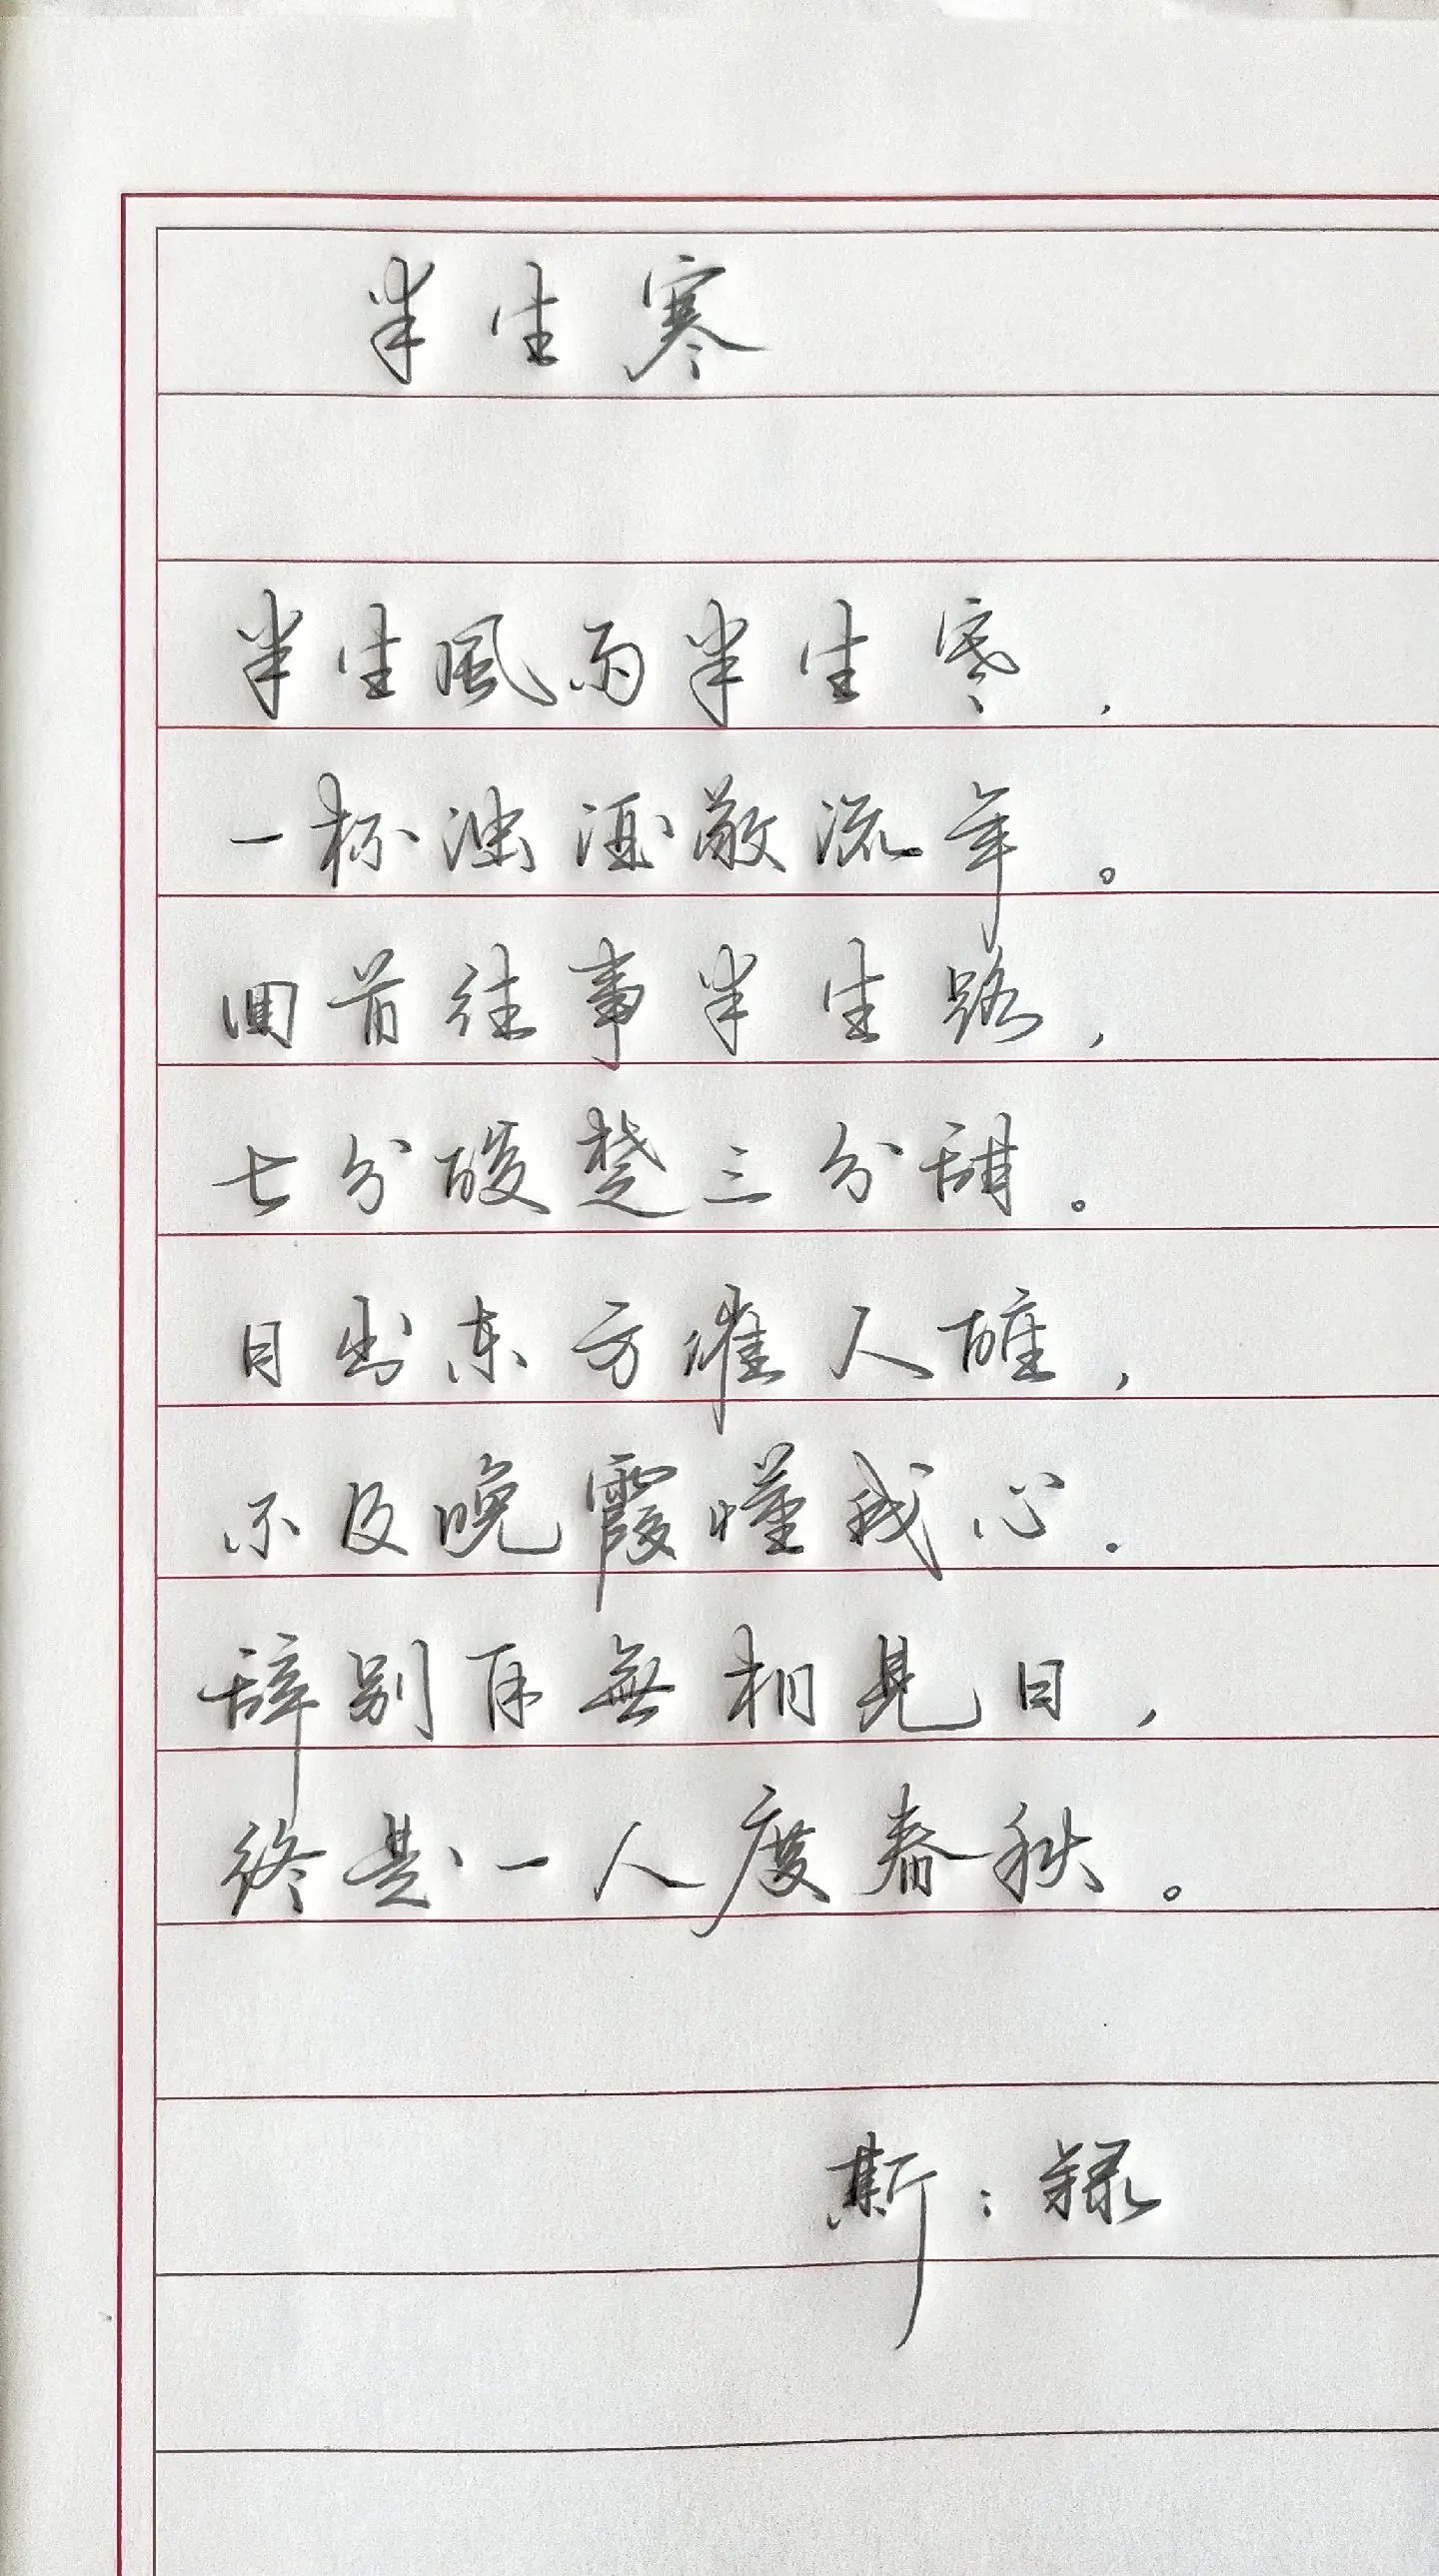 半生寒
半生風雨半生寒，
一杯浊酒敬流年。
回首往事半生路，
七分酸楚三分甜。
日出东方催人醒，
不及晚霞懂我心.
辞别再無相見日，
终是一人度春秋。
斯：録